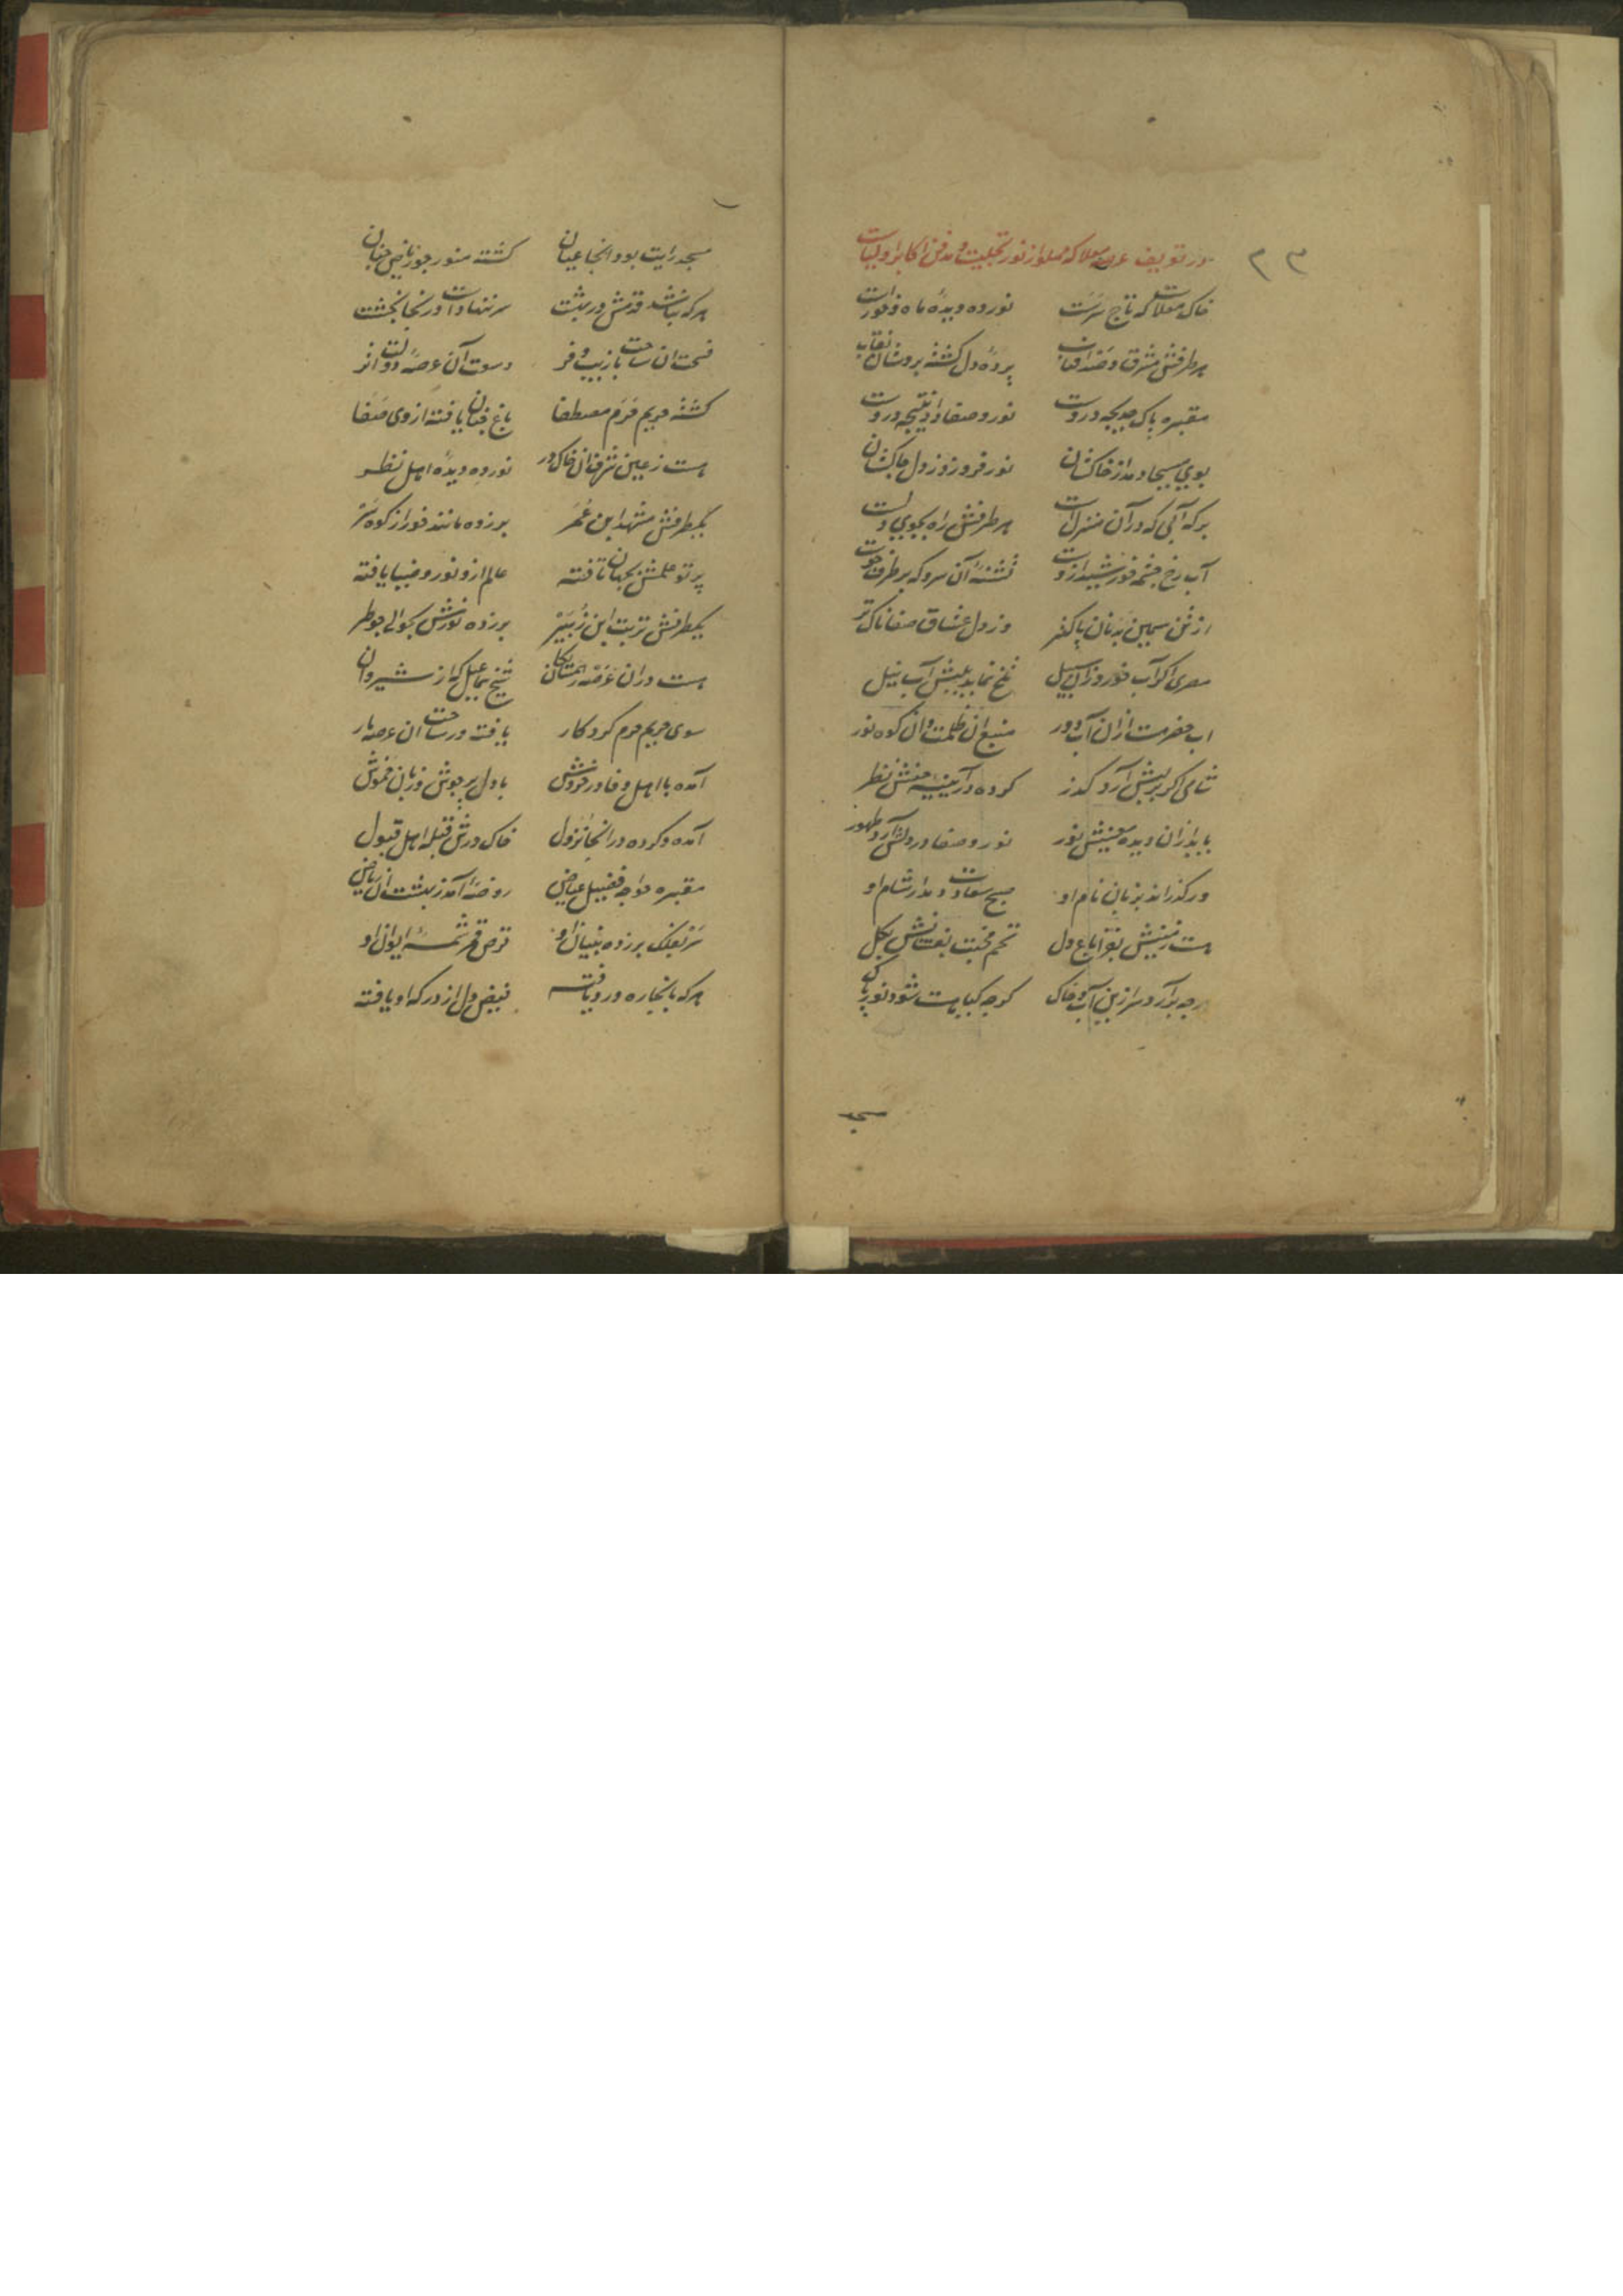 در تعریف عرصه معلا که مملو از نور تجلیست و مدفن اکابر اولیاست
۲۳
خاک معلاست که تاج سرست نور ده دیده ماه و خورست
هر طرفش مشرق صد آفتاب پرده دل گشته بروشان نقاب
مقبره پاک خدیجه دروست نور و صفا را نتیجه دروست
بوی مسیحا دمد از خاکشان نور فروزد ز دل چاکشان
برکه آبی که در آن منزلست هر طرفش راه بجوی دلست
آب رخ چشمه خورشید ازوست تشنه آن سرو که بر طرف جوست
از تن سیمین بدنان پاکتر وز دل عشاق صفاناکتر
مصری اگر آب خورد زان سبیل تلخ نماید بلبش آب نیل
آب خضر هست ازان آب دور منبع آن ظلمت و آن کوه نور
شامی اگر بر لبش آرد گذر کرده در آیینه چشمش نظر
یابد ازان دیده معنیش نور نور و صفا در دلش آرد ظهور
ور گذراند بزبان نام او صبح سعادت دمد از شام او
هست زمینش بتر از باغ دل تخم محبت بقعاتش بگل
هرچه برآرد سر ازین آب و خاک گرچه گیاهست شود نور پاک
مسجد
مسجد رایت بود آنجا عیان گشته منور چو ریاض جنان
هرکه نباشد قدمش در بهشت سر ننهاد است در آنجا بخشت
فسحت آن ساحت با زیب و فر وسعت آن عرصه دولت اثر
گشته حریم حرم مصطفا باغ جنان یافته از وی صفا
هست ز عین شرف آن خاک در نور ده دیده اهل نظر
یکطرفش مشهد ابن عمر بر زده مانند خور از کوه سر
پرتو علمش بجهان تافته عالم ازو نور و ضیا یافته
یکطرفش تربت ابن زبیر بر زده نورش بحوالی چو طیر
هست در آن عرصه شیخ سماعیل که از شیروان
سوی حریم حرم کردگار یافته در ساحت آن عرصه بار
آمده با اهل وفا در خروش با دل پر جوش و زبان خموش
آمده و کرده در آنجا نزول خاک درش قبله اهل قبول
مقبره خواجه فضیل عیاض روضه آمد ز بهشت آن ریاض
سر بفلک بر زده بنیان او قرص قمر شمسه ایوان او
هرکه بآنجا ره و رو یافته فیض دل از درگه او یافته